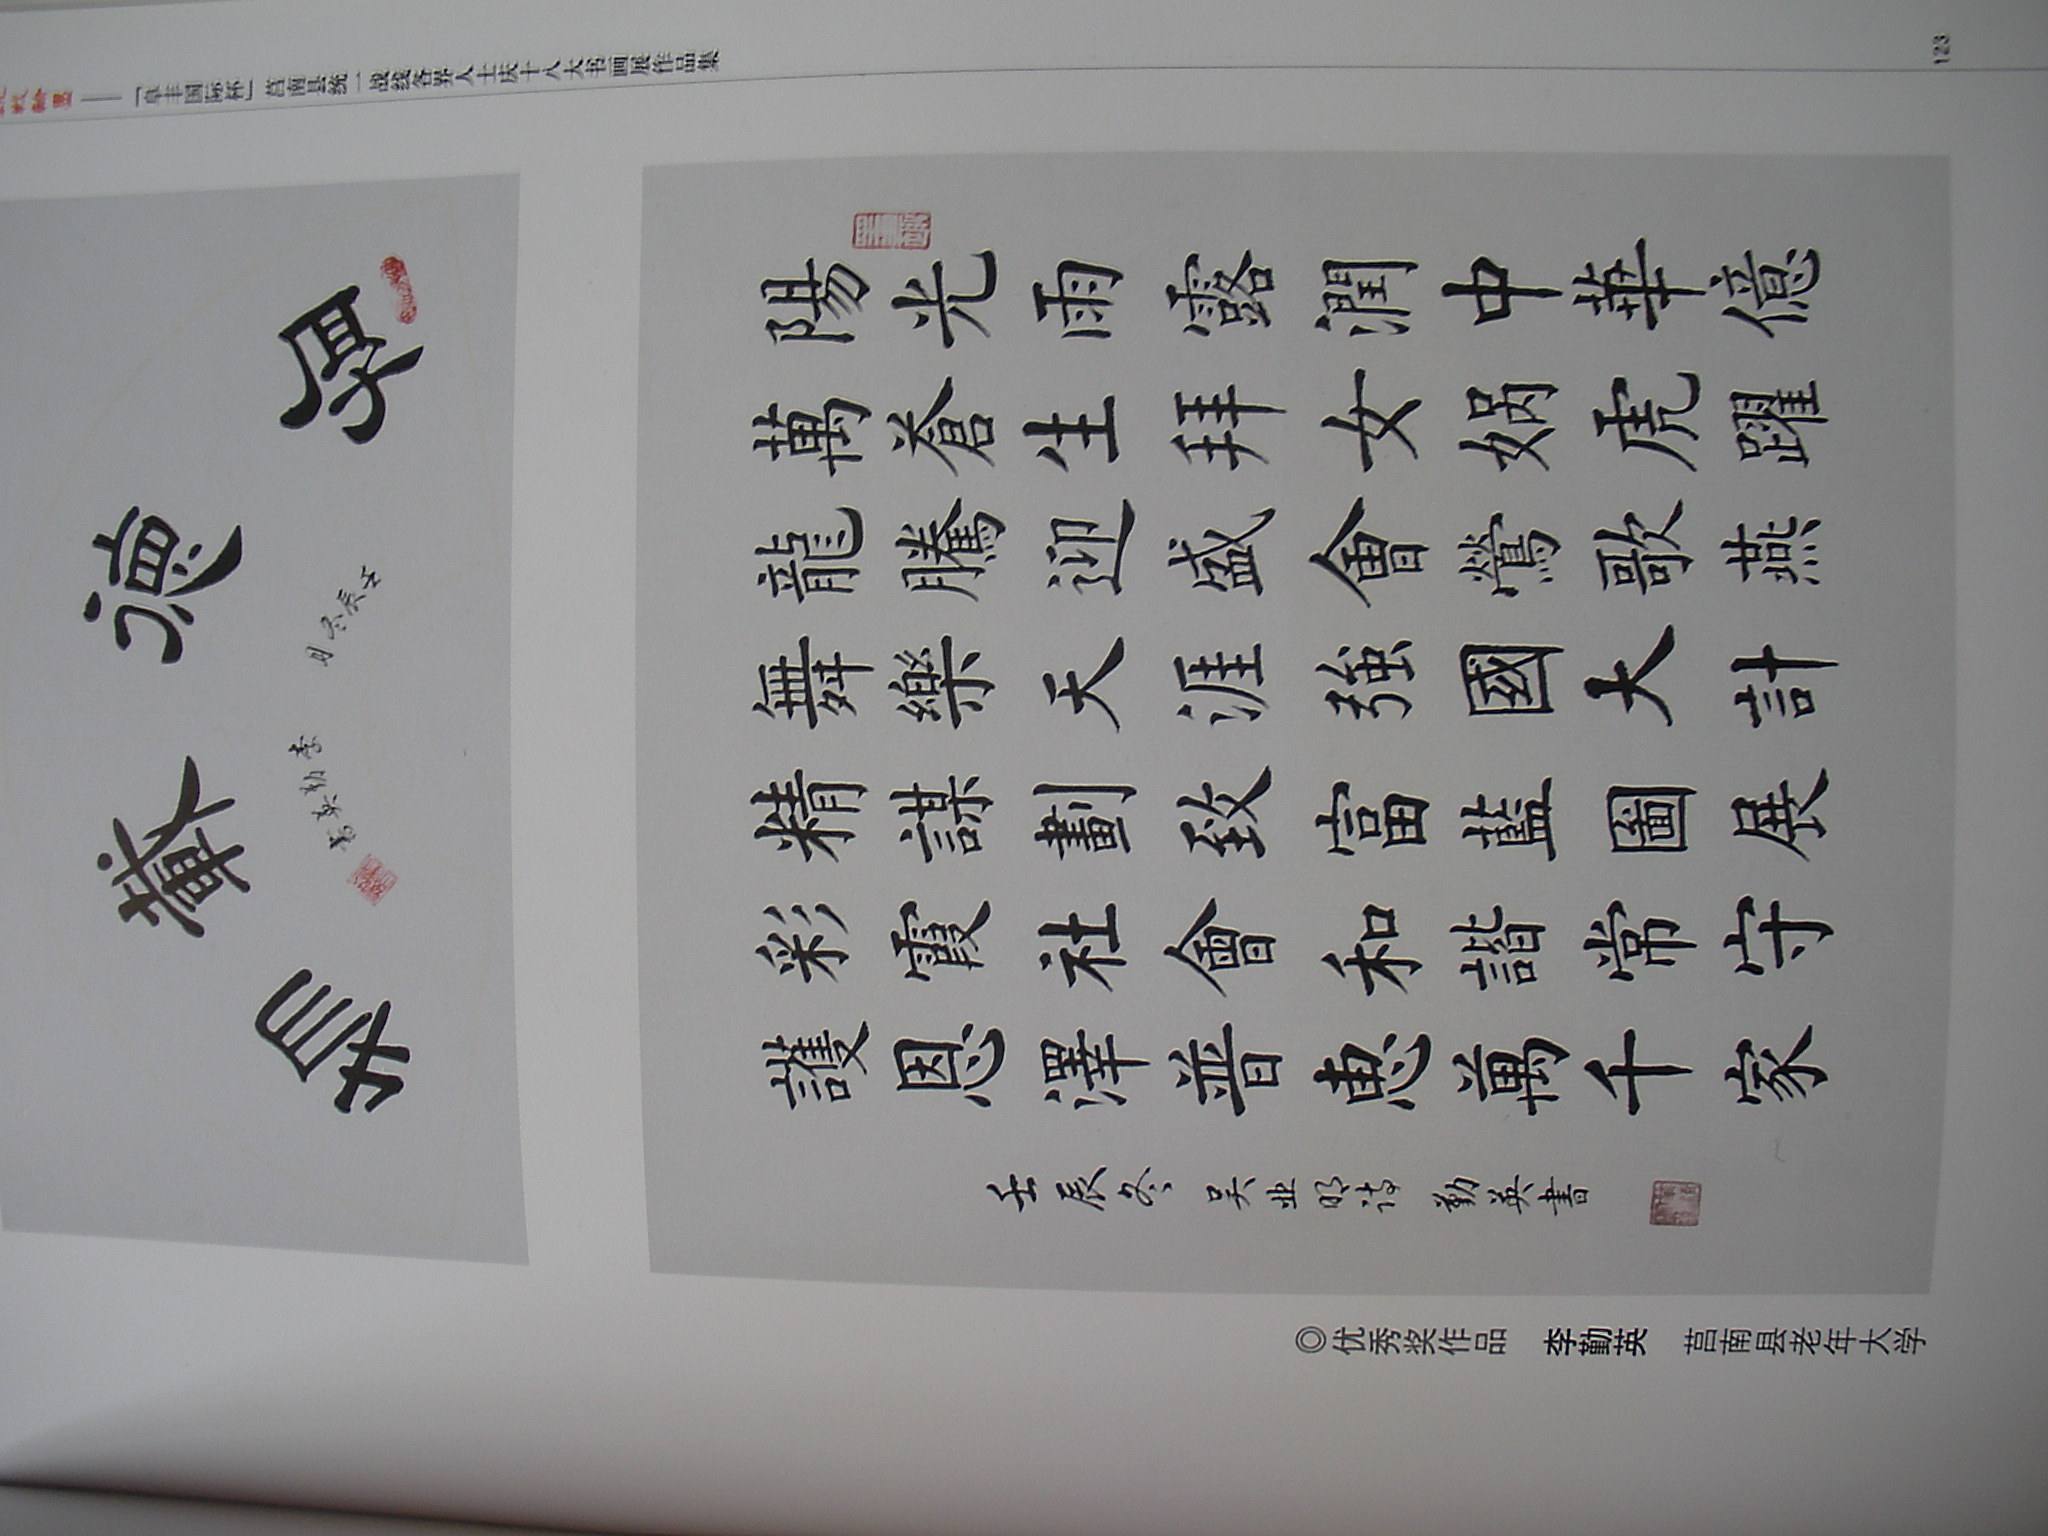 战翰墨——「阜丰国际杯」莒南县统一战线各界人士庆十八大书画展作品集
123
陽光雨露潤中華億
萬蒼生拜女媧虎躍
龍騰迎盛會鶯歌燕
舞樂天涯強國大計
精謀劃致富藍圖展
彩霞社會和諧常守
護恩澤普惠萬千家
壬辰冬 吴业明诗 勤英書
◎优秀奖作品 李勤英 莒南县老年大学
厚德載物
壬辰冬月
李勤英書